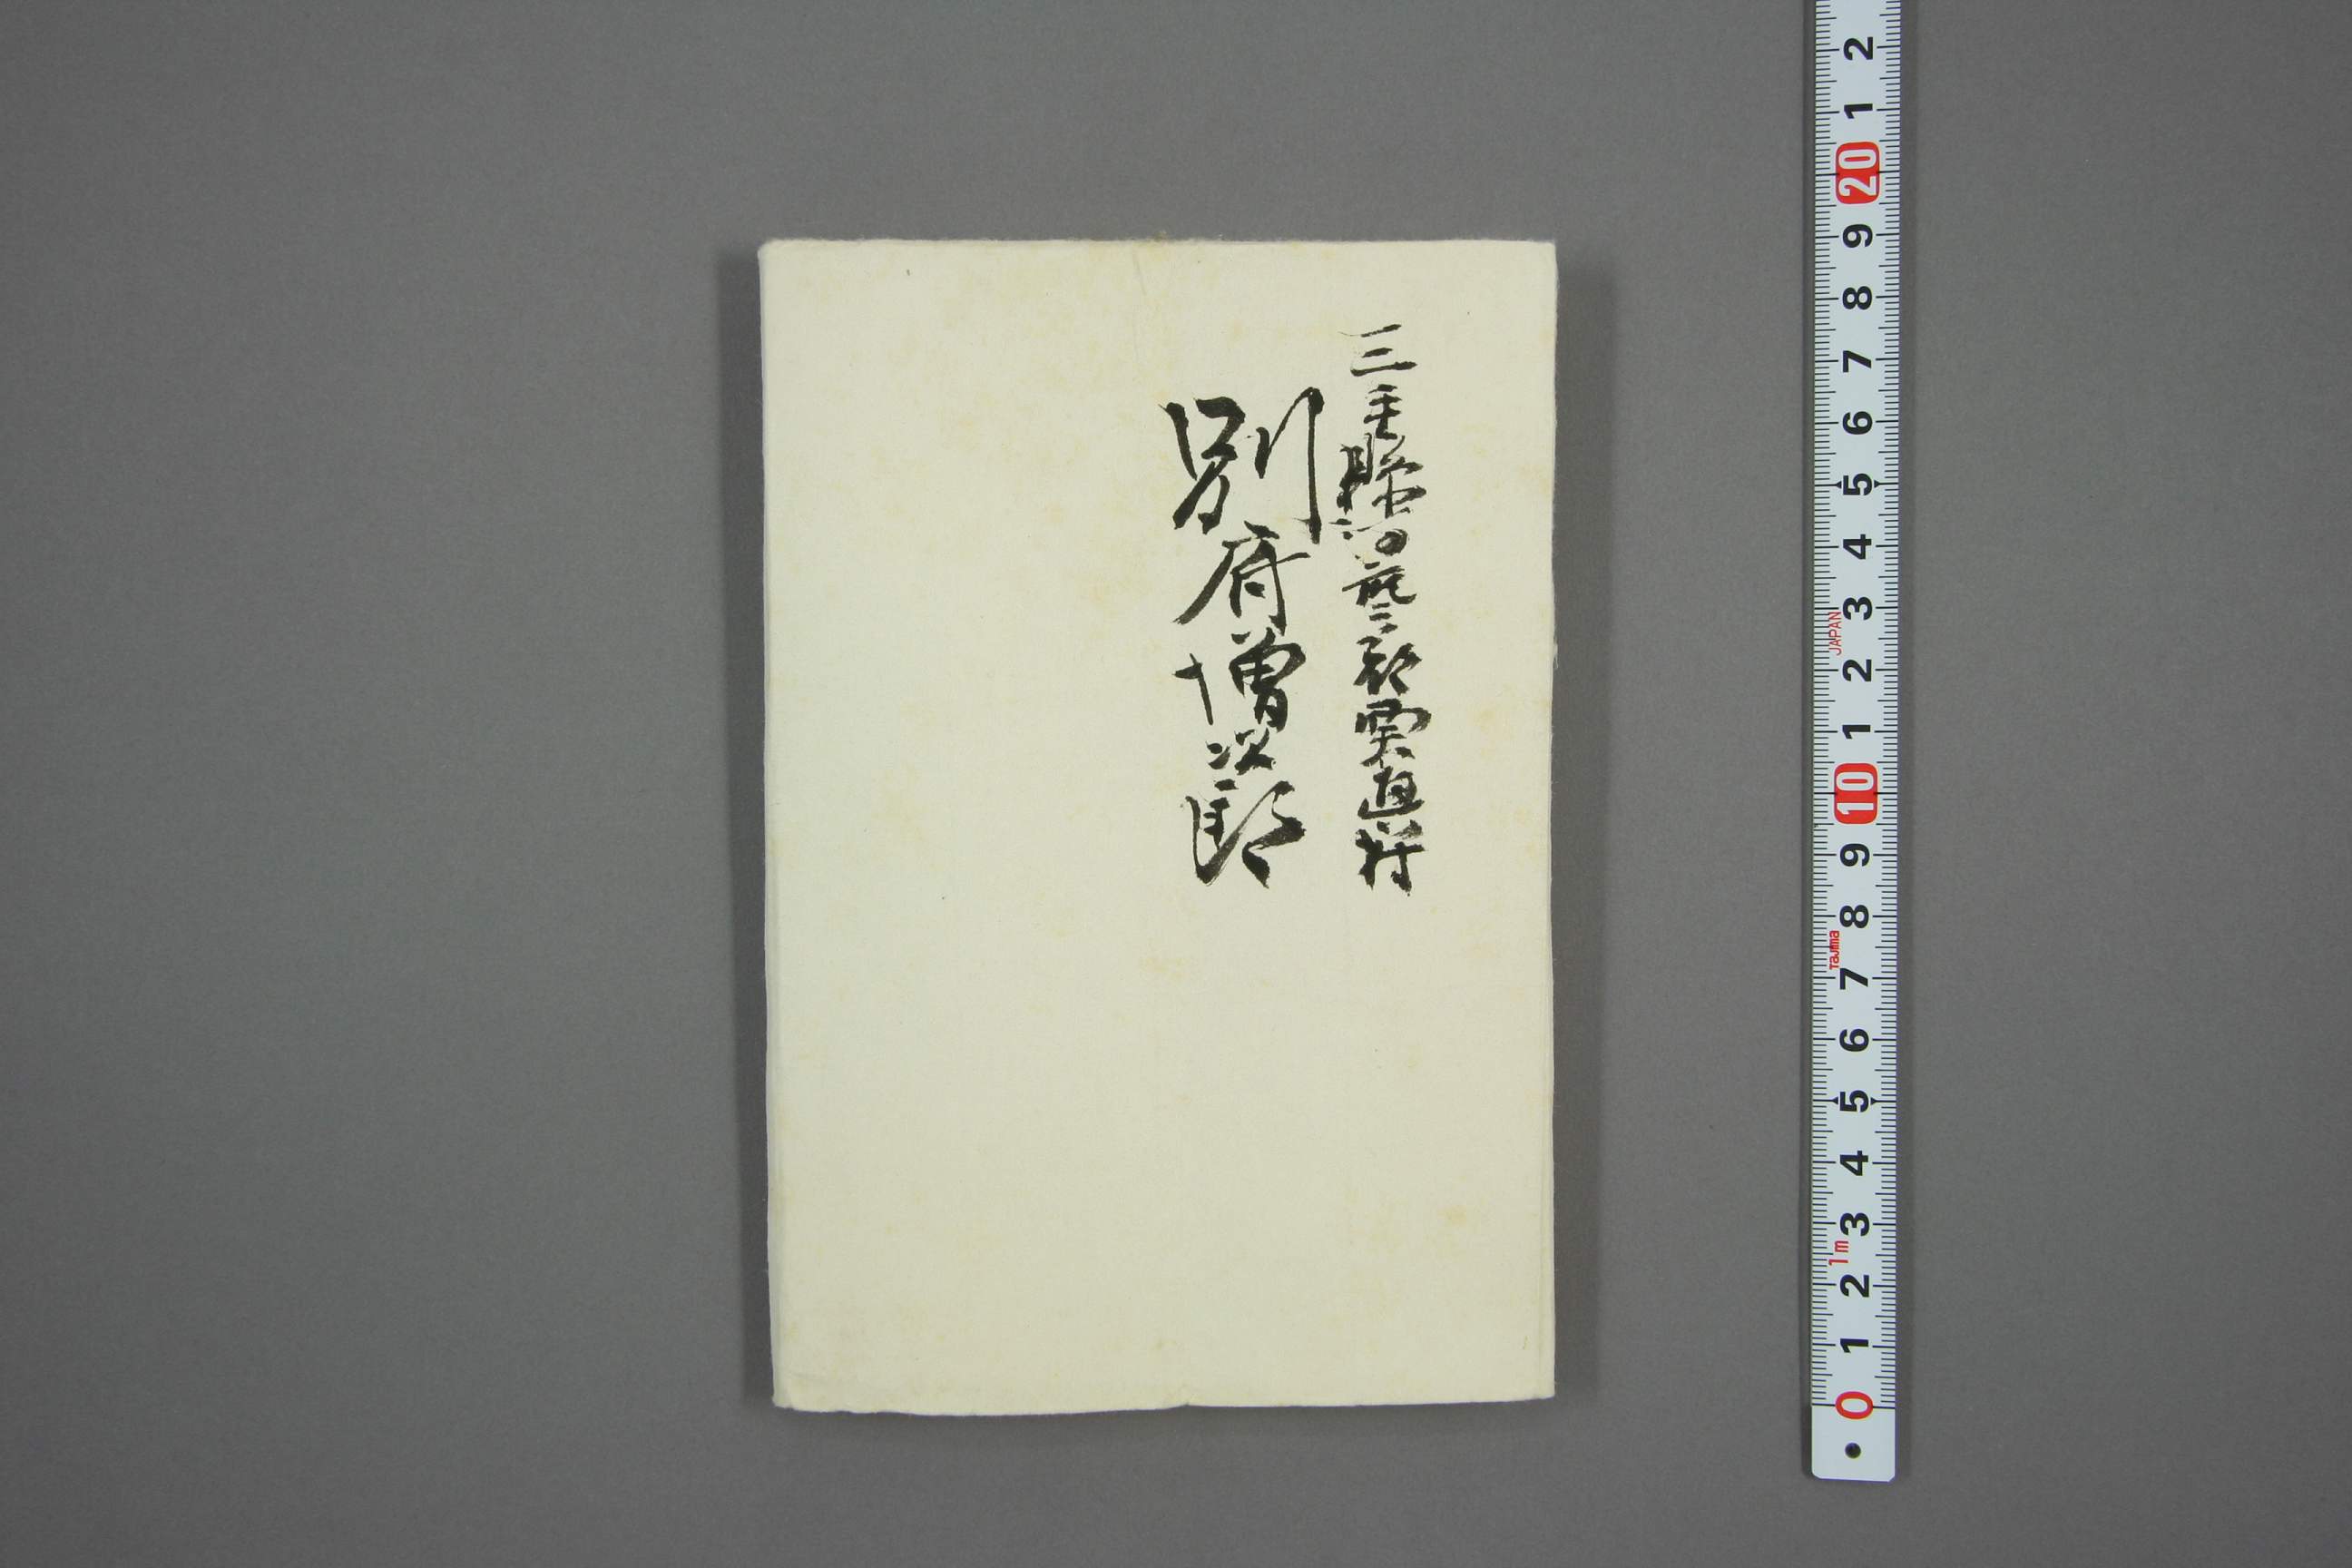 三重縣河藝郡栗真村
別府増次郎
2
1
20
9
8
7
6
5
4
3
JAPAN
2
1
10
9
8
Tajima
7
6
5
4
3
1m
2
1
0